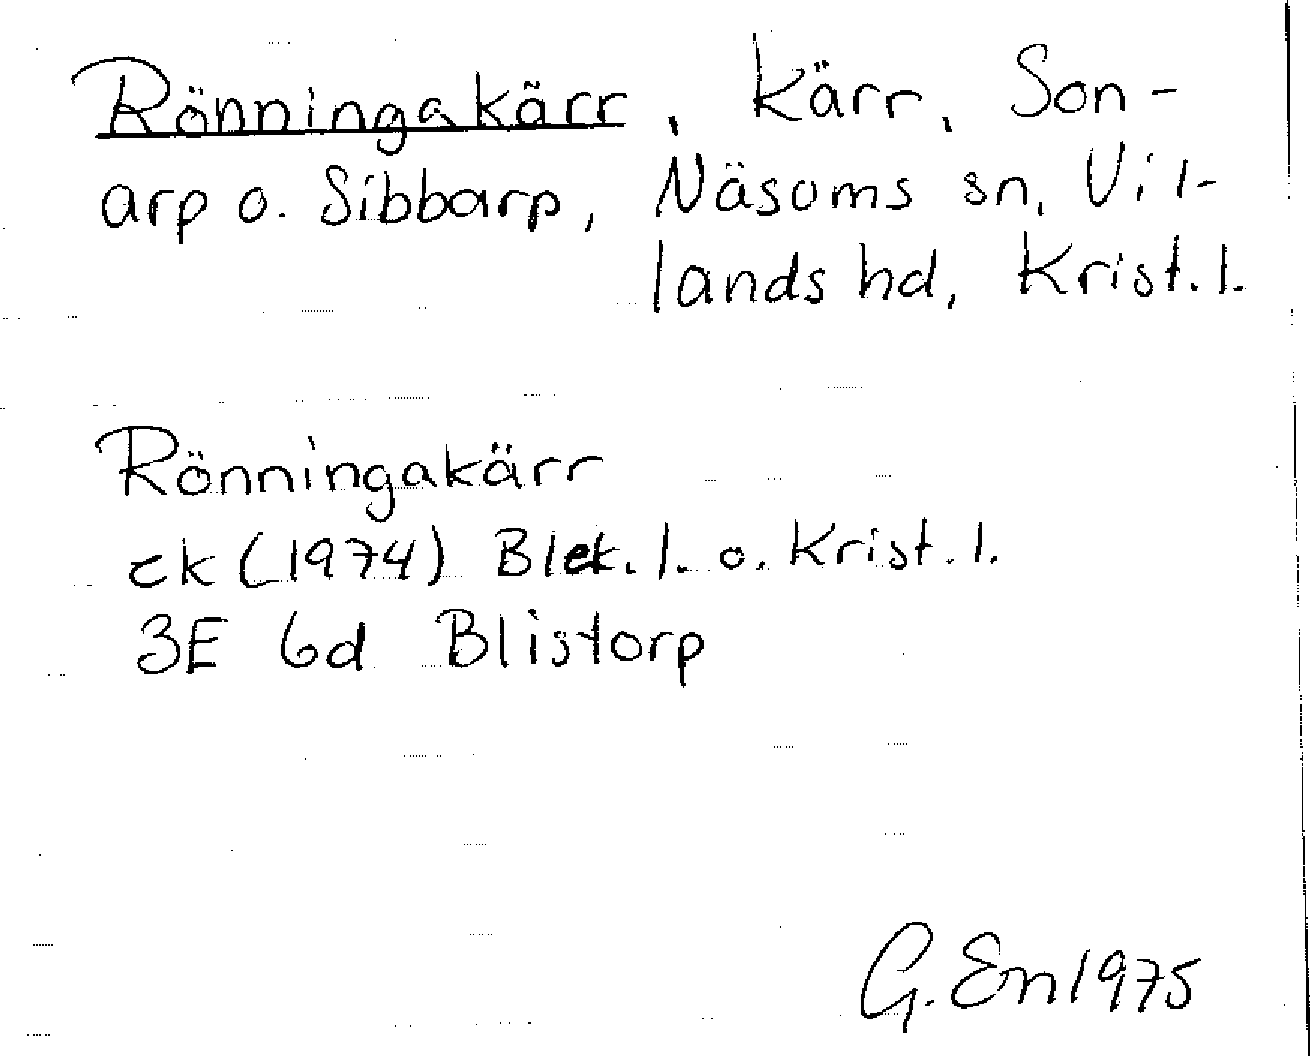 Rönningakärr, kärr, Son-
arp o. Sibbarp, Näsoms sn, Vil-
lands hd, Krist. l.
Rönningakärr
ek (1974) Blek. l. o. Krist. l.
3E 6d Blistorp
G. En 1975